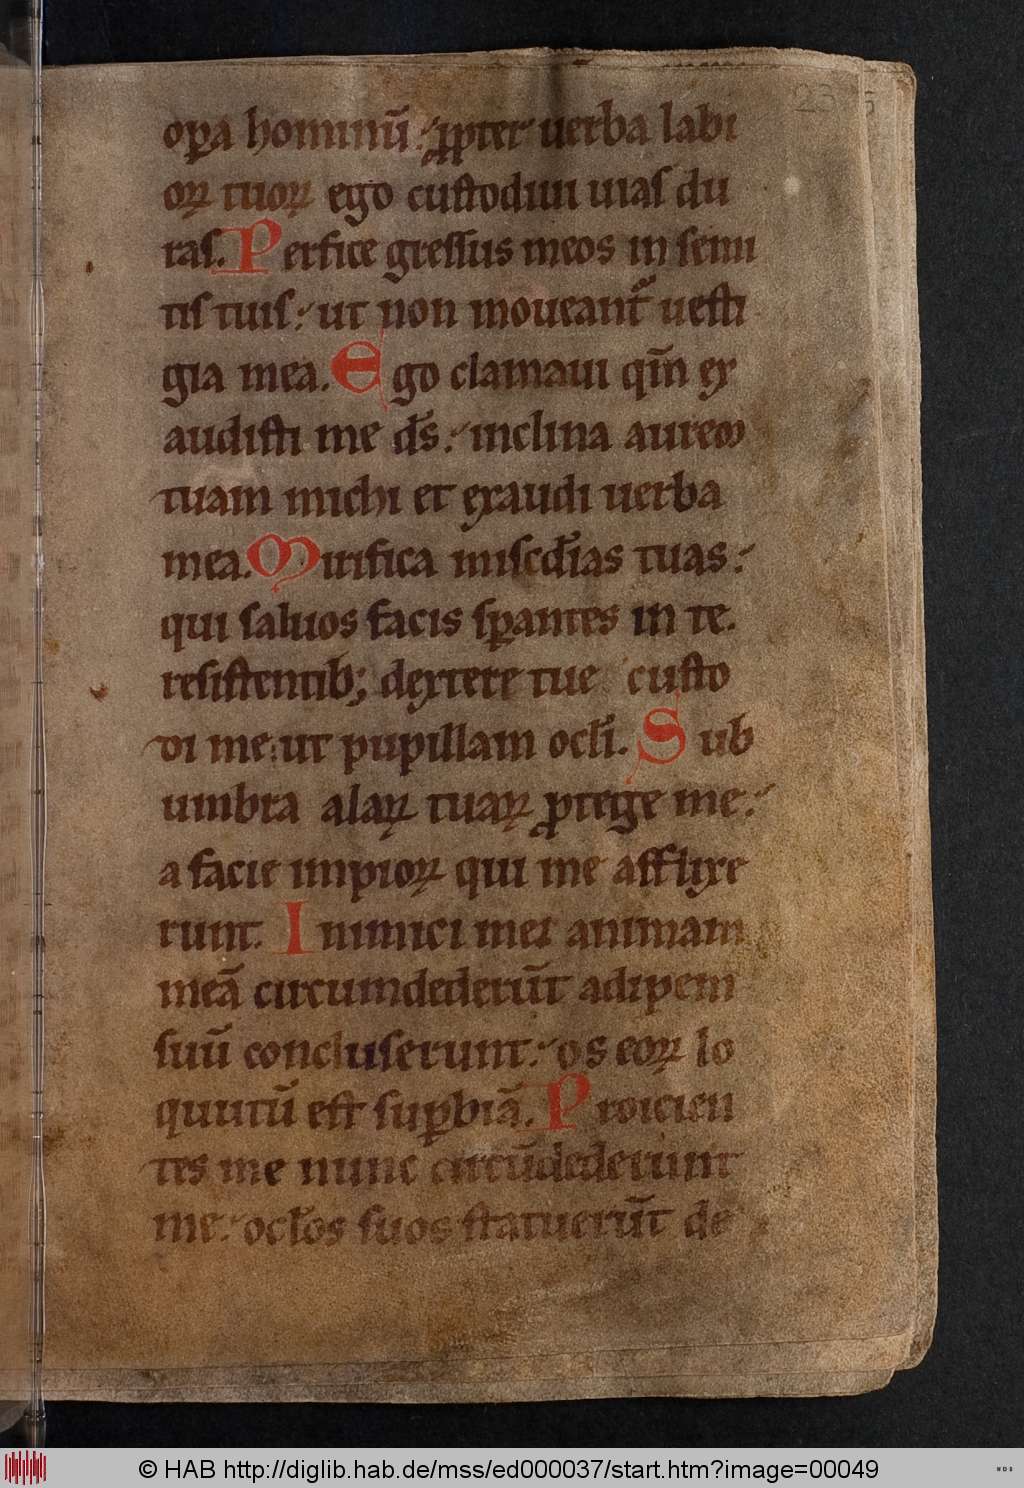 23 5
oꝑa hominū : ꝓpter uerba labi
oꝝ tuoꝝ ego custodiui uias du
ras. Perfice gressus meos in semi
tis tuis : ut non moueant᷑ uesti
gia mea. Ego clamaui qm̄ ex
audisti me ds̄ : inclina aurem
tuam michi et exaudi uerba
mea. Mirifica misc̄dias tuas :
qui saluos facis sꝑantes in te.
resistentib; dextere tue custo
di me : ut pupillam ocl̄i. Sub
umbra alaꝝ tuaꝝ ꝓtege me :
a facie impioꝝ qui me afflixe
runt. Inimici mei animam
meā circumdederūt adipem
suū concluserunt : os eoꝝ lo
quutū est suꝑbiā. Proicien
tes me nunc circūdederunt
me : ocl̄os suos statuerūt de
© HAB http://diglib.hab.de/mss/ed000037/start.htm?image=00049